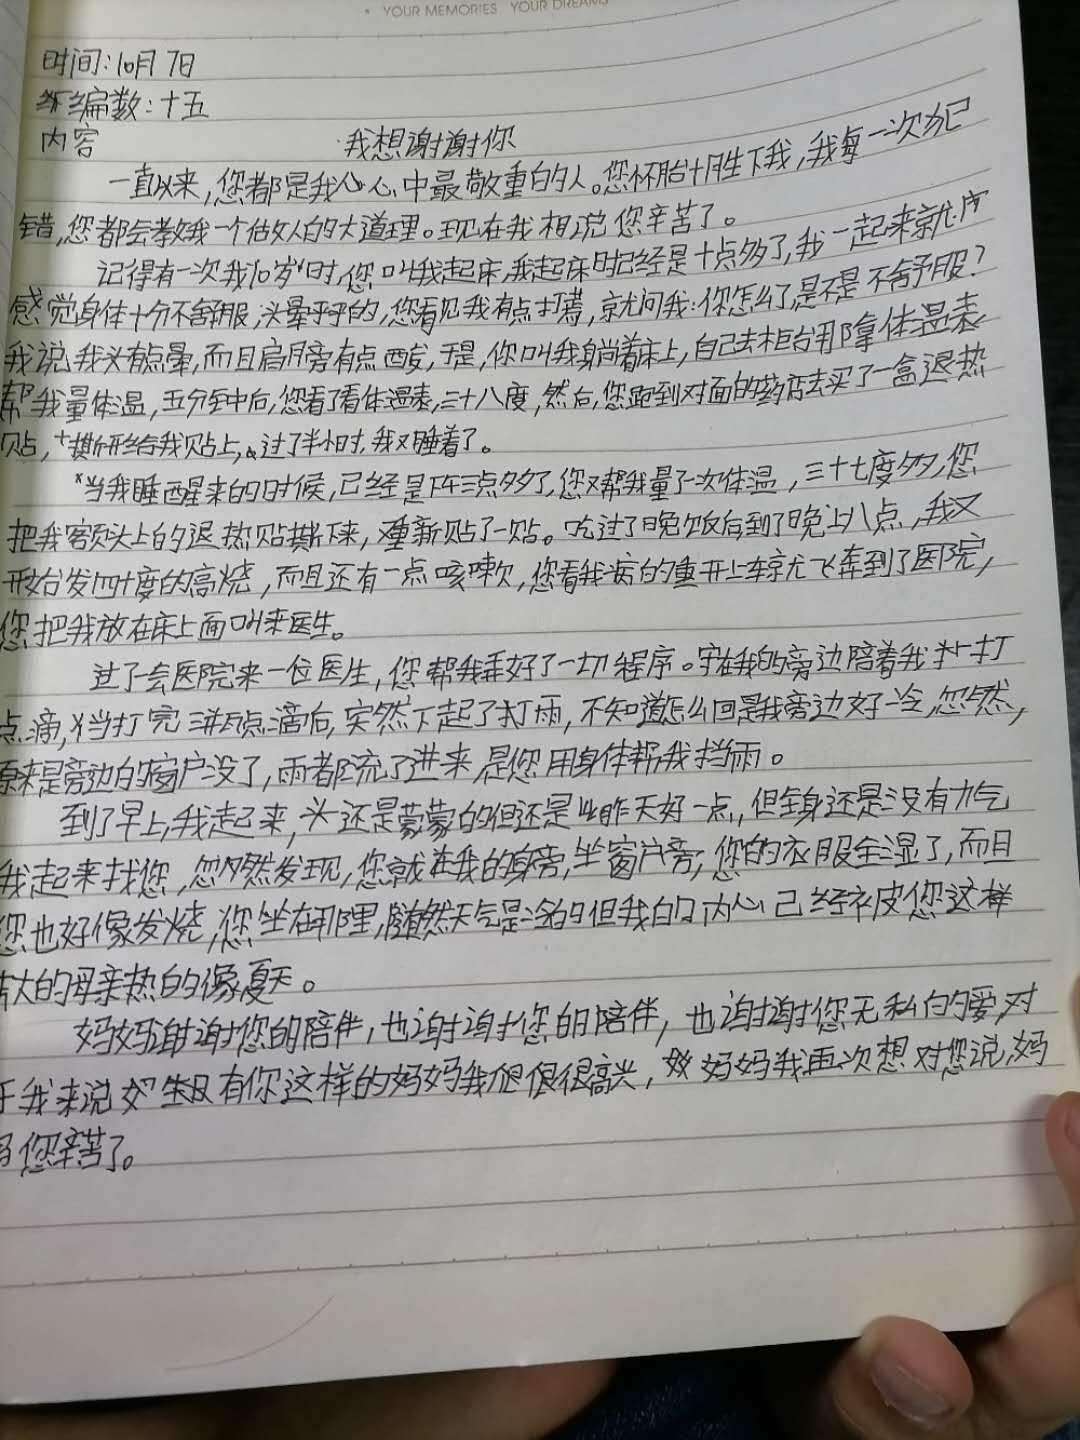 YOUR MEMORIES YOUR DREAMS
时间:10月7日
编数:十五
内容 我想谢谢你
一直以来,您都是我心中最敬重的人。您怀胎十月生下我,我每一次犯
错,您都会教我一个做人的大道理。现在我想说您辛苦了。
记得有一次我10岁时,您叫我起床,我起床时已经是十点多了,我一起来就
感觉身体十分不舒服,头晕乎乎的,您看见我有点打蔫,就问我:你怎么了,是不是不舒服?
我说我头有点晕,而且肩膀有点酸,于是,你叫我躺着床上,自己去柜台那拿体温表
帮我量体温,五分钟后,您看了看体温表,三十八度,然后,您跑到对面的药店去买了一盒退热
贴,撕开给我贴上,过了半小时,我又睡着了。
当我睡醒来的时候,已经是下午三点多了,您又帮我量了一次体温,三十七度多,您
把我额头上的退热贴撕下来,重新贴了一贴。吃过了晚饭后到了晚上八点,我又
开始发四十度的高烧,而且还有一点咳嗽,您看我病的重开上车就飞奔到了医院,
您把我放在床上面叫来医生。
过了会医院来一位医生,您帮我弄好了一切程序。守在我的旁边陪着我打
点滴,当打完三瓶点滴后,突然下起了打雨,不知道怎么回是我旁边好冷,忽然,
原来是旁边的窗户没了,雨都流了进来,是您用身体帮我挡雨。
到了早上,我起来,头还是蒙蒙的但还是比昨天好一点,但全身还是没有力气
我起来找您,忽然发现,您就在我的身旁,坐窗户旁,您的衣服全湿了,而且
您也好像发烧,您坐在那里,随然天气是冷的但我的内心已经被您这样
大的母亲热的像夏天。
妈妈谢谢您的陪伴,也谢谢您的陪伴,也谢谢您无私的爱,对
于我来说有你这样的妈妈我很很高兴,妈妈我再次想对您说,妈
妈您辛苦了。